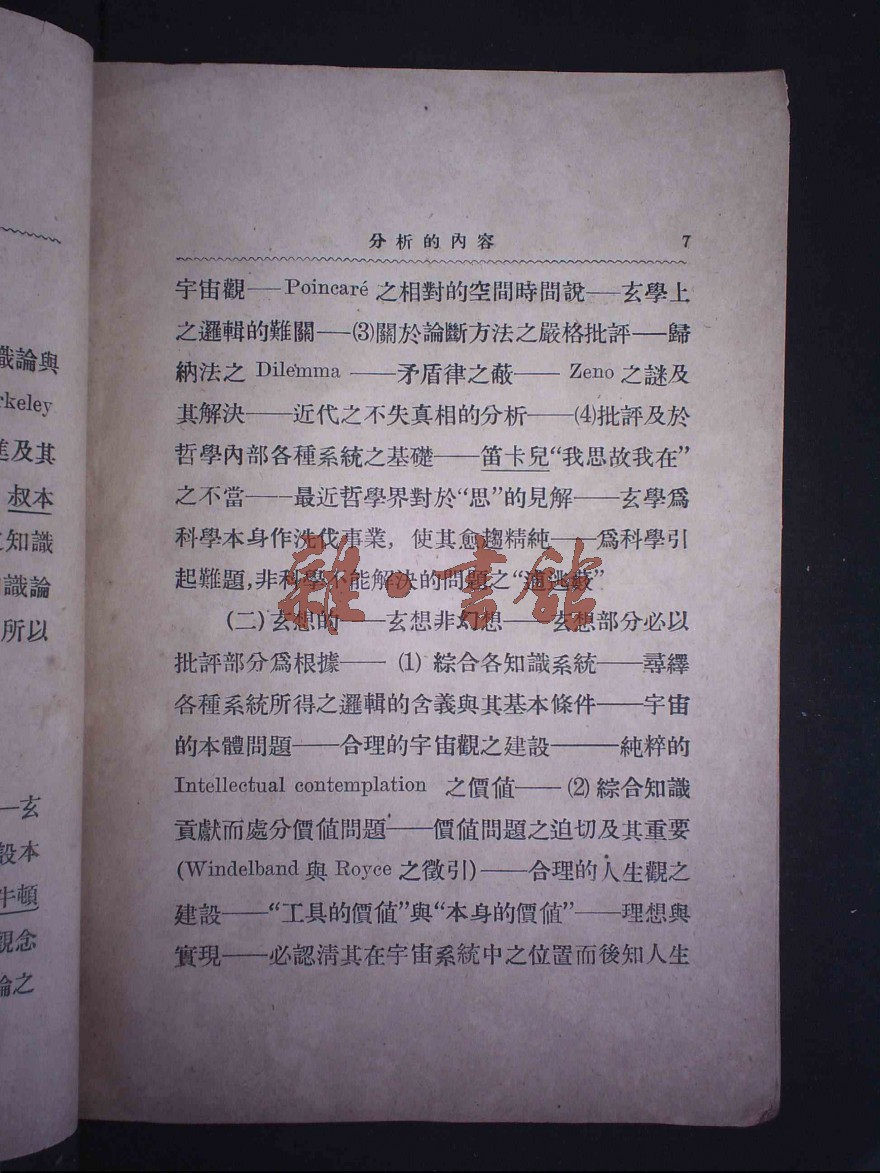 識論與
rkeley
進及其
叔本
之知識
識論
所以
—玄
設本
牛頓
觀念
論之
分析的內容 7
宇宙觀——Poincaré 之相對的空間時間說——玄學上
之邏輯的難關——(3)關於論斷方法之嚴格批評——歸
納法之 Dilemma ——矛盾律之蔽—— Zeno 之謎及
其解決——近代之不失真相的分析——(4)批評及於
哲學內部各種系統之基礎——笛卡兒“我思故我在”
之不當——最近哲學界對於“思”的見解——玄學爲
科學本身作洗伐事業，使其愈趨精純——爲科學引
起難題,非科學不能解決的問題之“逋逃藪”
(二)玄想的——玄想非幻想——玄想部分必以
批評部分爲根據—— (1) 綜合各知識系統——尋繹
各種系統所得之邏輯的含義與其基本條件——宇宙
的本體問題——合理的宇宙觀之建設———純粹的
Intellectual contemplation 之價值—— (2) 綜合知識
貢獻而處分價值問題——價值問題之迫切及其重要
(Windelband 與 Royce 之徵引)——合理的人生觀之
建設——“工具的價值”與“本身的價值”——理想與
實現——必認清其在宇宙系統中之位置而後知人生
雜·書館